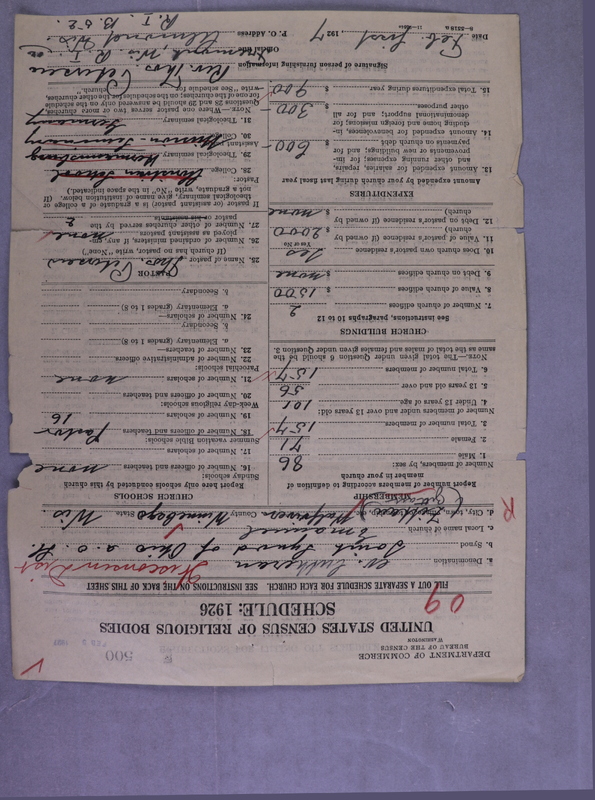 DEPARTMENT OF COMMERCE
BUREAU OF THE CENSUS
WASHINGTON
500
UNITED STATES CENSUS OF RELIGIOUS BODIES
SCHEDULE: 1926
09
FILL OUT A SEPARATE SCHEDULE FOR EACH CHURCH. SEE INSTRUCTIONS ON THE BACK OF THIS SHEET
a. Denomination Ev. Lutheran Wisconsin Dist
b. Synod Joint Synod of Ohio a. o. St.
c. Local name of church Emanuel
County Winnebago State Wis.
R
MEMBERSHIP
Report number of members according to definition of
member in your church
Number of members, by sex:
1. Male 86
2. Female 71
3. Total number of members 157
Number of members under and over 13 years old:
4. Under 13 years of age 101
5. 13 years old and over 56
6. Total number of members 157
NOTE.—The total given under Question 6 should be the
same as the total of males and females given under Question 3.
CHURCH BUILDINGS
See instructions, paragraphs 10 to 12
7. Number of church edifices 2
8. Value of church edifices $ 1500
9. Debt on church edifices $ none
10. Does church own pastor's residence Yes
Yes or No
11. Value of pastor's residence (if owned by
church) $ 2000
12. Debt on pastor's residence (if owned by
church) $ none
EXPENDITURES
Amount expended by your church during last fiscal year
13. Amount expended for salaries, repairs,
and other running expenses; for im-
provements or new buildings; and for
payments on church debt $ 600
14. Amount expended for benevolences, in-
cluding home and foreign missions; for
denominational support; and for all
other purposes 300
15. Total expenditures during year $ 900
CHURCH SCHOOLS
Report here only schools conducted by this church
Sunday schools:
16. Number of officers and teachers none
17. Number of scholars
Summer vacation Bible schools:
18. Number of officers and teachers Pastor
19. Number of scholars 16
Week-day religious schools:
20. Number of officers and teachers
21. Number of scholars none
Parochial schools:
22. Number of administrative officers
23. Number of teachers—
a. Elementary (grades 1 to 8)
b. Secondary
24. Number of scholars—
a. Elementary (grades 1 to 8)
b. Secondary
PASTOR
25. Name of pastor Thos. Petersen
(If church has no pastor, write "None")
26. Number of ordained ministers, if any, em-
ployed as assistant pastors none
27. Number of other churches served by the
pastor or his assistants 2
If pastor (or assistant pastor) is a graduate of a college or
theological seminary, give name of institution below. (If
not a graduate, write "No" in the space indicated.)
Pastor:
28. College
29. Theological seminary Hermannsburg
Assistant pastor:
30. College Mission Seminary
31. Theological seminary Germany
NOTE.—Where one pastor serves two or more churches,
Questions 28 and 29 should be answered only on the schedule
for one of the churches; on the schedules for the other churches,
write "See schedule for church."
Signature of person furnishing information
Rev. Thos. Petersen
Official title
P. O. Address Almond, Wis.
R. 1. B. 52.
Date Feb. first 1927
8—5518 a